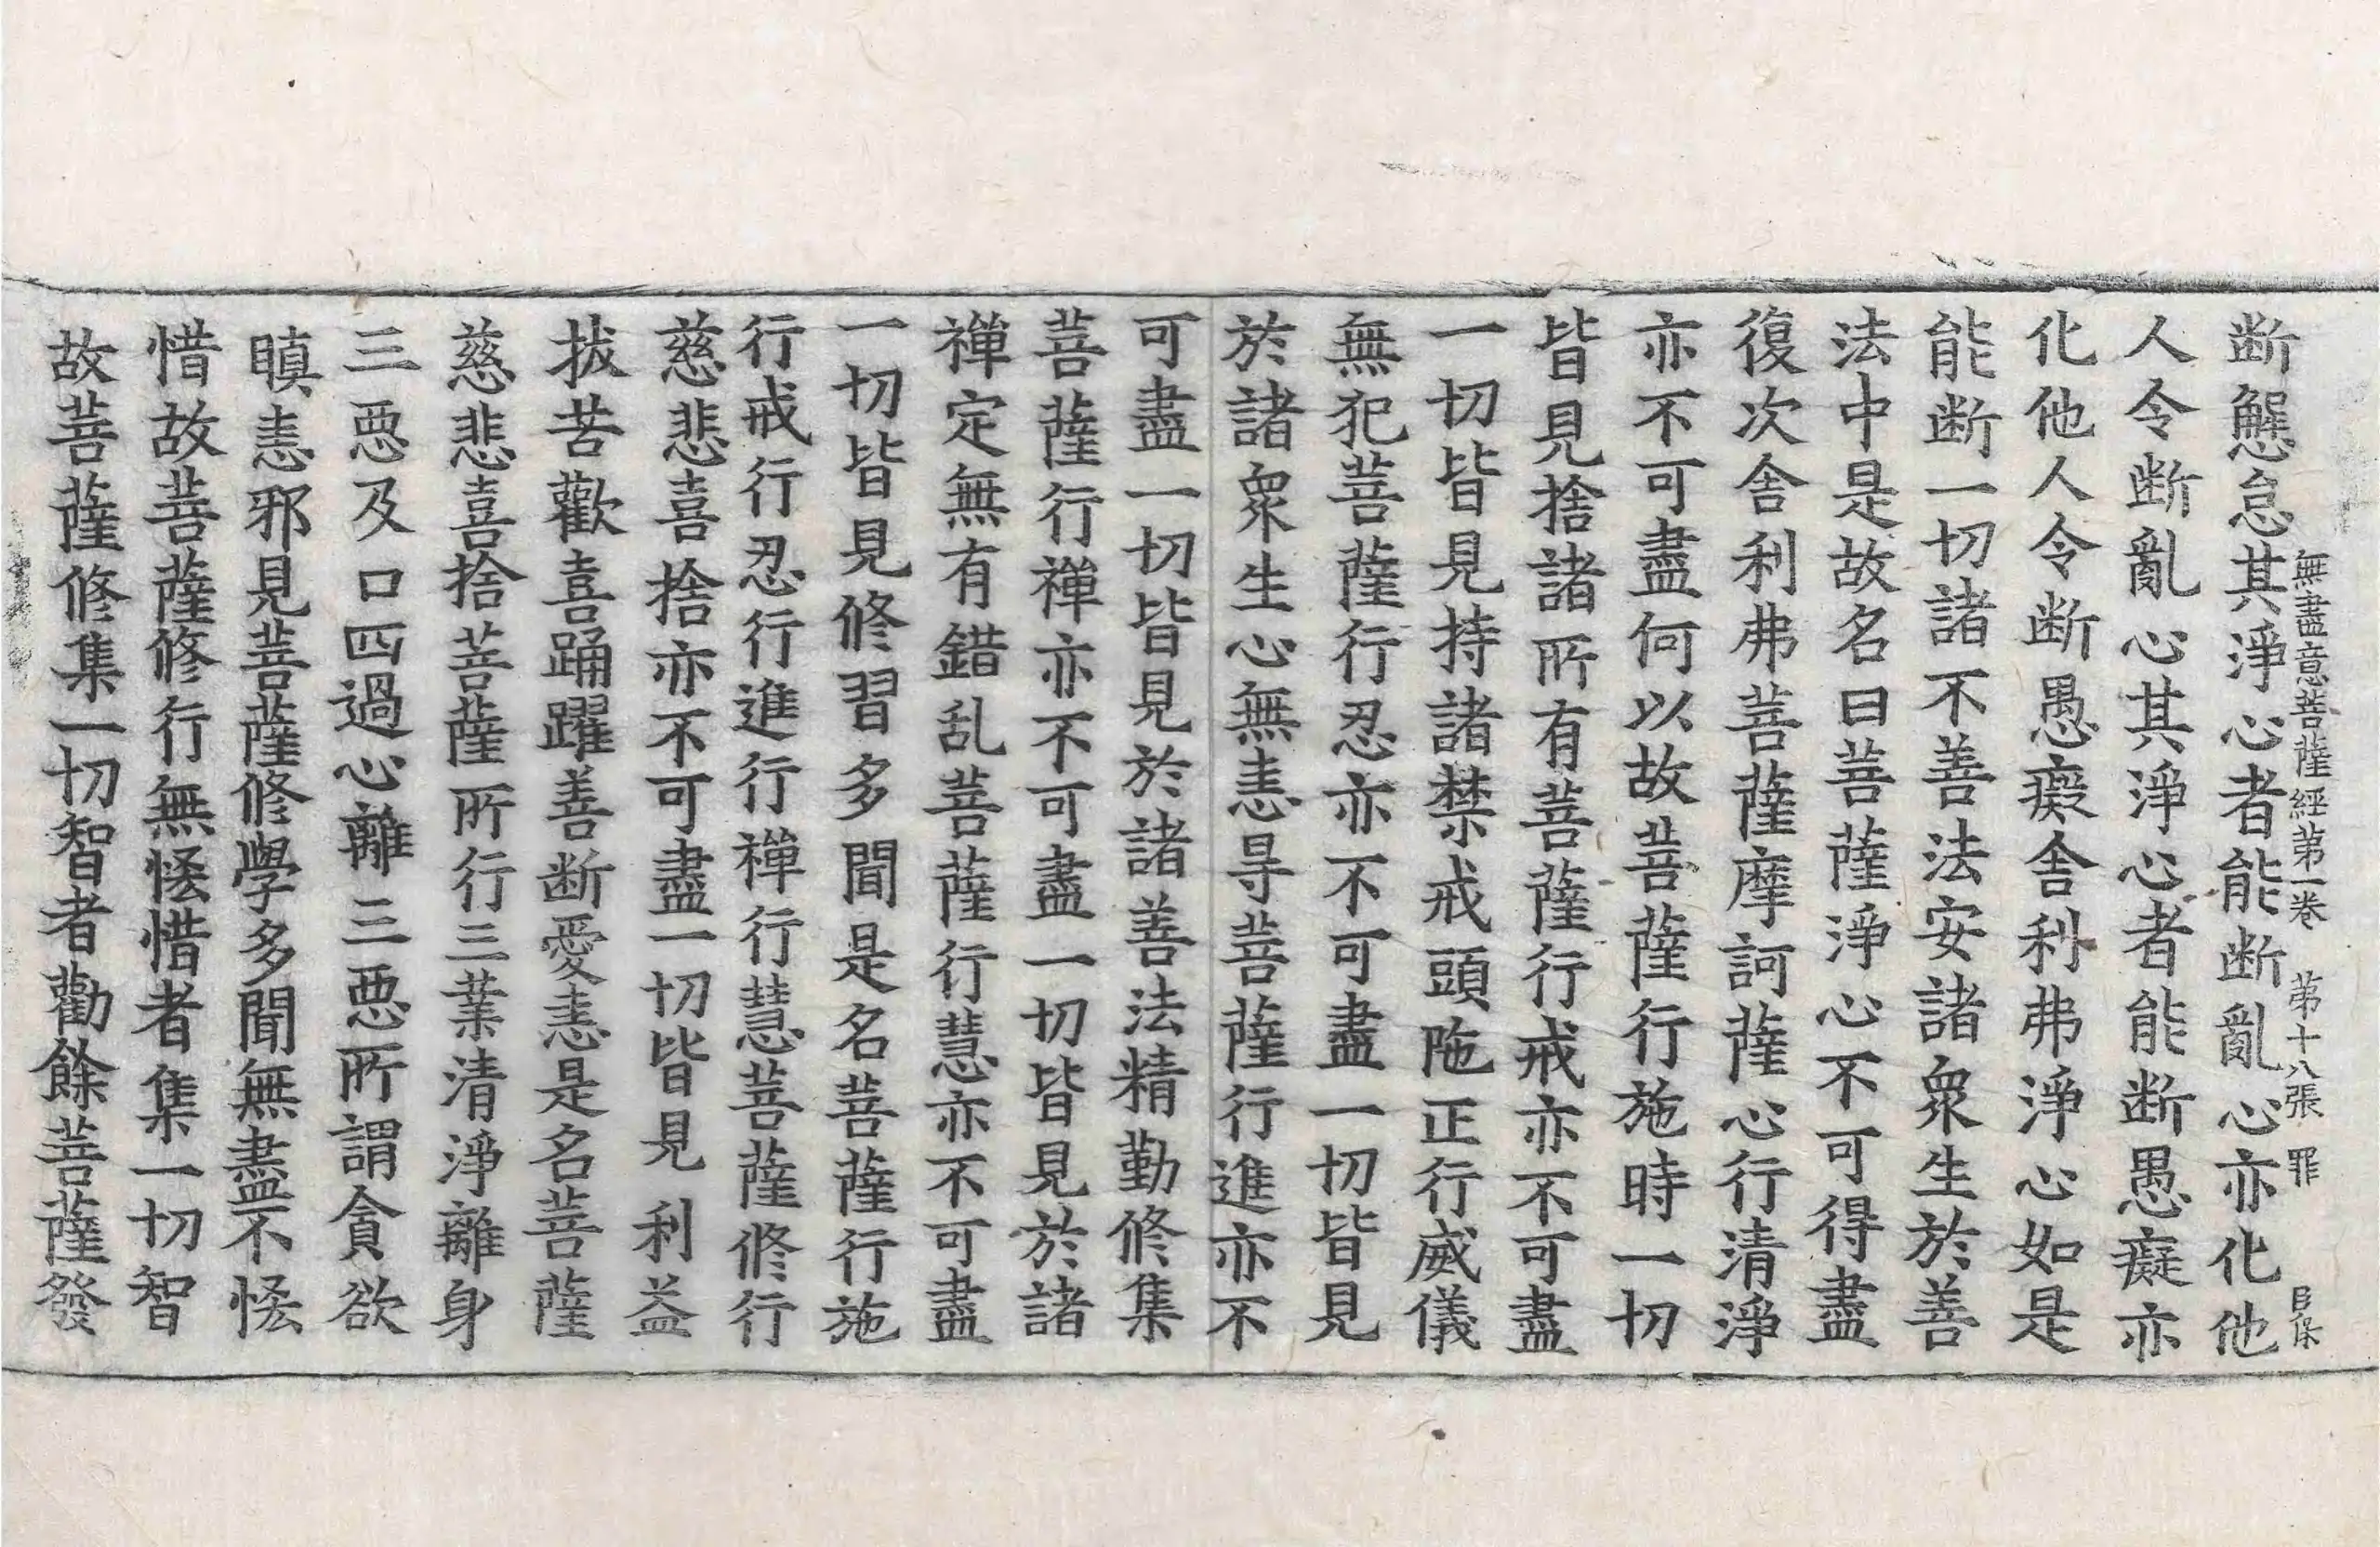 無盡意菩薩經第一卷 第十八張 罪
断懈怠其淨心者能断亂心亦化他
人令断亂心其淨心者能断愚癡亦
化他人令断愚癡舍利弗淨心如是
能断一切諸不善法安諸衆生於善
法中是故名曰菩薩淨心不可得盡
復次舍利弗菩薩摩訶薩心行清淨
亦不可盡何以故菩薩行施時一切
皆見捨諸所有菩薩行戒亦不可盡
一切皆見持諸禁戒頭陁正行威儀
無犯菩薩行忍亦不可盡一切皆見
於諸衆生心無恚㝵菩薩行進亦不
可盡一切皆見於諸善法精勤修集
菩薩行禪亦不可盡一切皆見於諸
禪定無有錯乱菩薩行慧亦不可盡
一切皆見修習多聞是名菩薩行施
行戒行忍行進行禪行慧菩薩修行
慈悲喜捨亦不可盡一切皆見利益
拔苦歡喜踊躍善断愛恚是名菩薩
慈悲喜捨菩薩所行三業清淨離身
三惡及口四過心離三惡所謂貪欲
瞋恚邪見菩薩修學多聞無盡不恡
惜故菩薩修行無恡惜者集一切智
故菩薩修集一切智者勸餘菩薩發